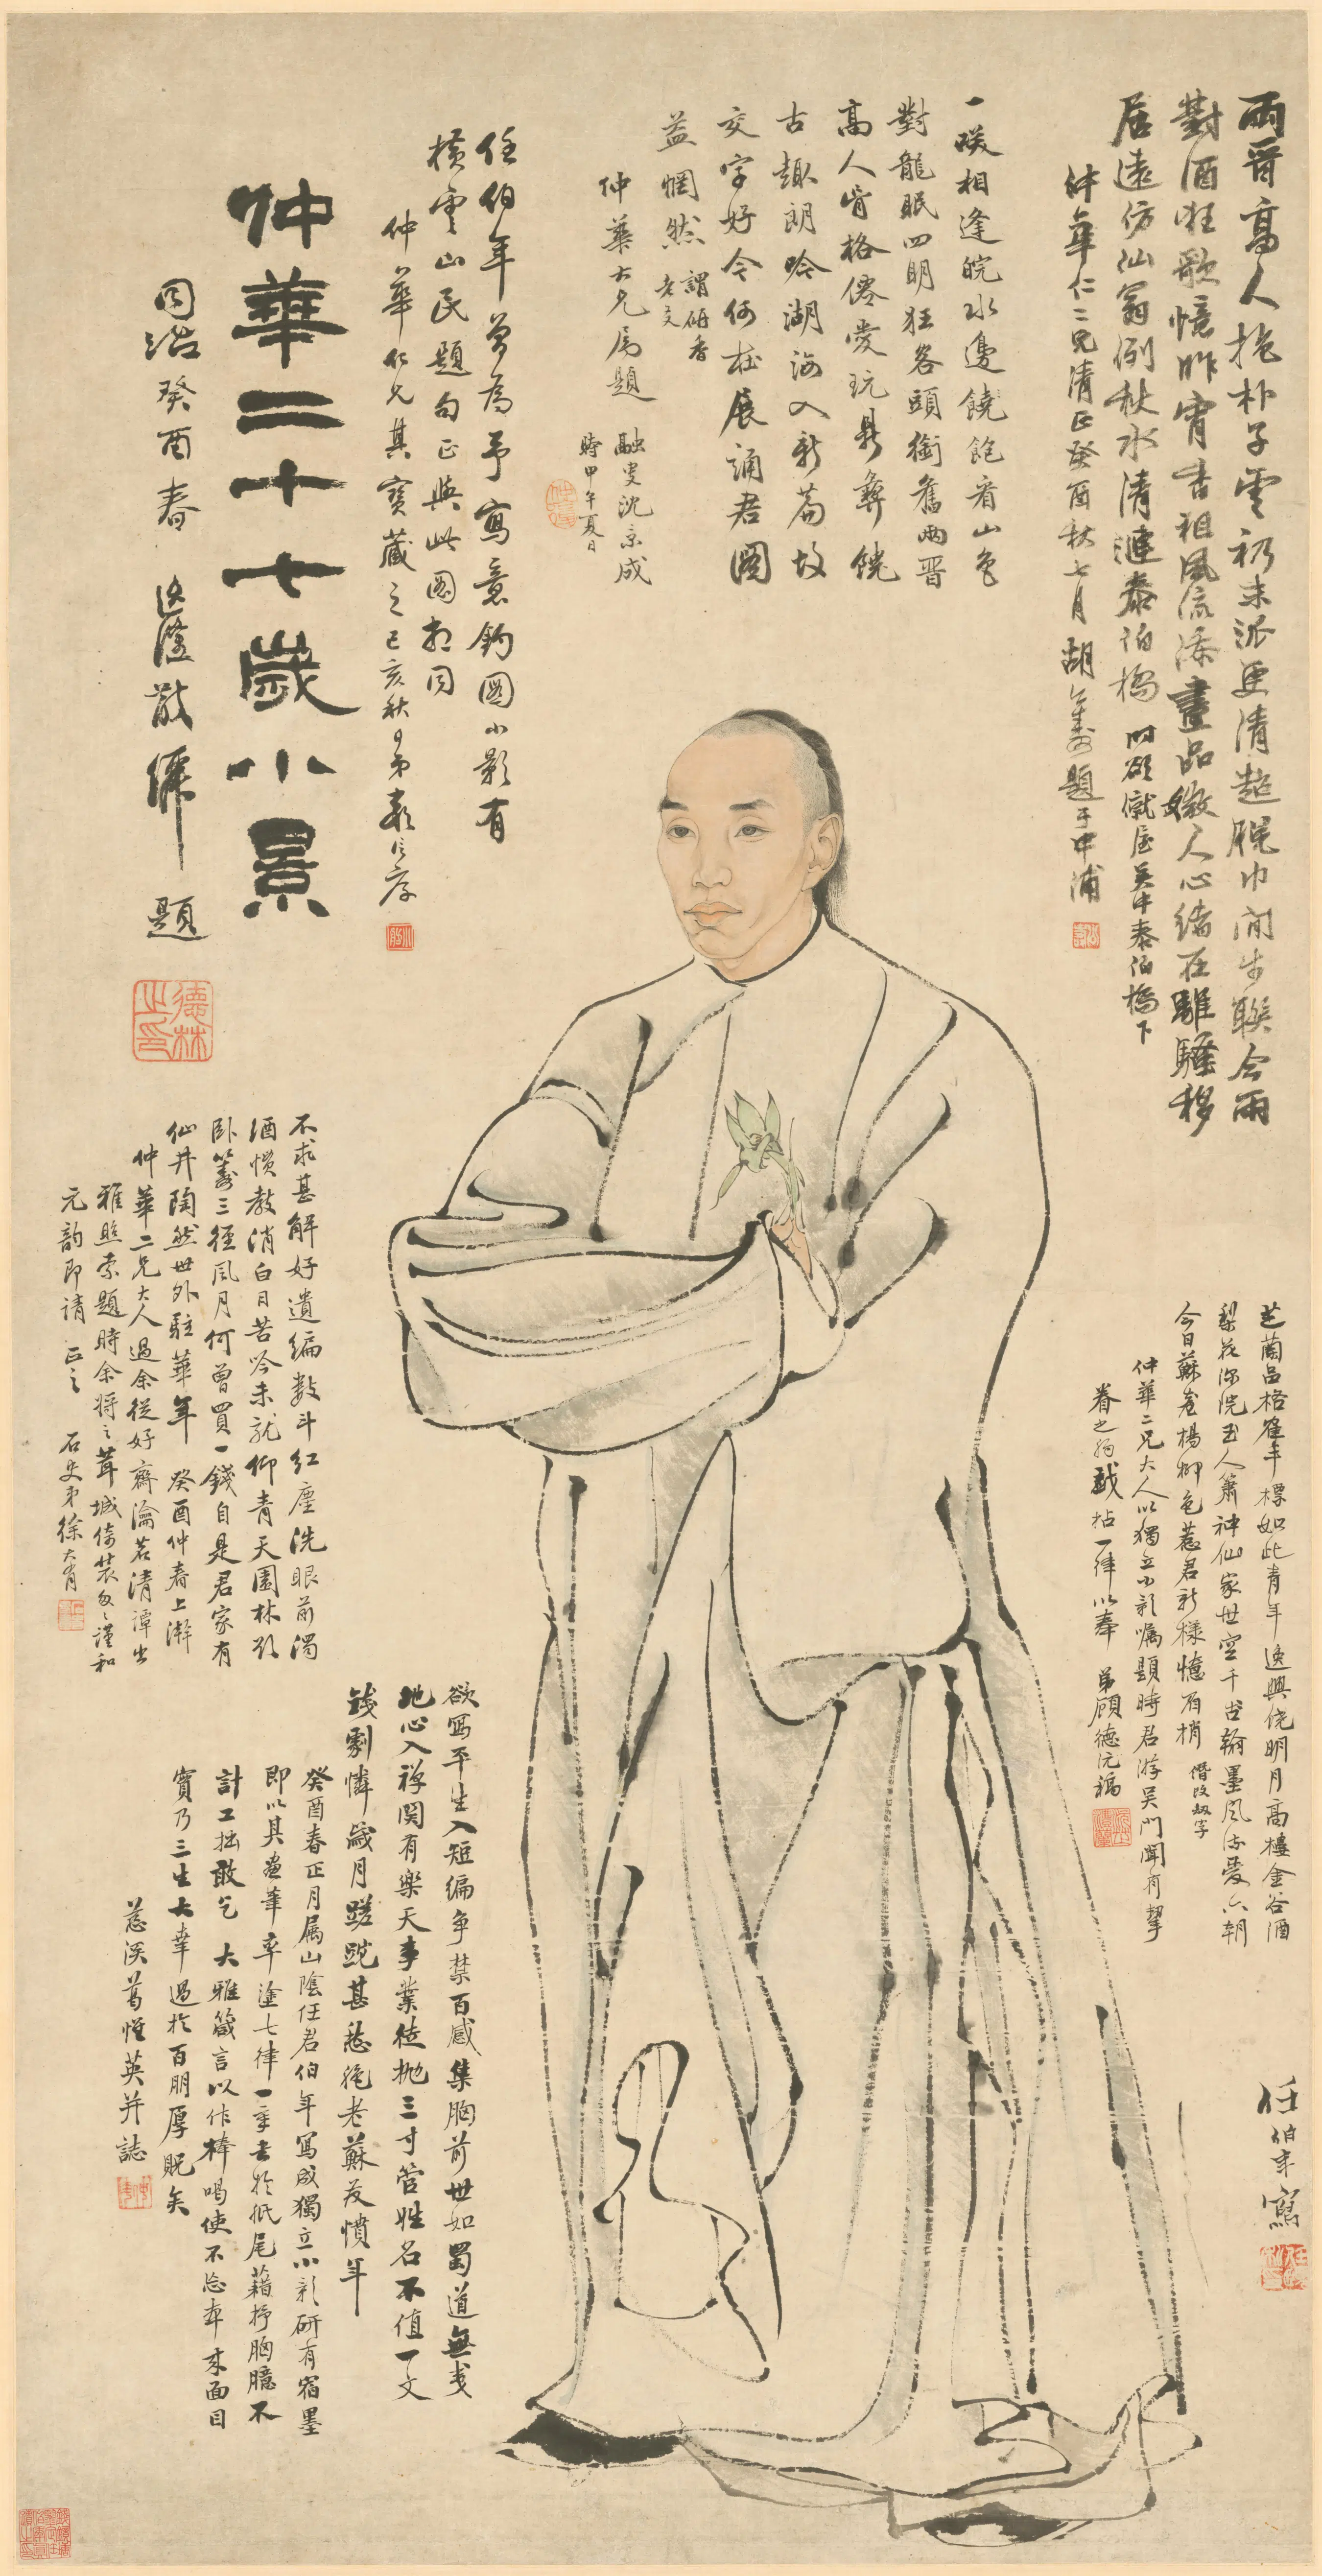 兩晉高人抱朴子雲礽末派更清超脫巾閒步聯今雨
對酒狂歌憶昨宵書祖風流添畫品嫩人心緒在離騷移
居遠仿仙翁例秋水清漣泰伯橋 時欲僦屋吳中泰伯橋下
仲華仁二兄清正癸酉秋七月 胡公壽題于申浦
一笑相逢皖水邊饒飽看山色
對龍眠四明狂客頭銜舊兩晉
高人骨格僊愛玩鼎彝饒
古趣朗吟湖海入新篇故
交字好今何在展誦君圖
益惘然 謂研香老友
仲華大兄屬題
融叟沈景成
時甲午夏日
任伯年曾為予寫意釣圖小影有
橫雲山民題句正與此圖相同
仲華仁兄其寶藏之己亥秋日弟
仲華二十七歲小景
同治癸酉春 題
德林之印
不求甚解好遺編數斗紅塵洗眼前濁
酒慣教消白日苦吟未就仰青天園林
臥三徑風月何曾買一錢自是君家有
仙井陶然世外駐華年 癸酉仲春上澣
仲華二兄大人過余從好齋瀹茗清譚出
雅照索題時余將之茸城倚裝匆匆謹和
元韵即請 正之 石史弟徐大有
欲寫平生入短編爭禁百感集胸前世如蜀道無夷
地心入禪関有樂天事業徒拋三寸管姓名不值一文
錢劇憐歲月蹉跎甚愁絶老蘇發憤年
癸酉春正月屬山陰任君伯年寫成獨立小影研有宿墨
即以其畫筆率塗七律一章書於紙尾藉抒胸臆不
計工拙敢乞 大雅箴言以作棒喝使不忘本來面目
實乃三生大幸過於百朋厚貺矣
慈溪葛惟英并誌
芝蘭品格隺丰標如此青年逸興饒明月高樓金谷酒
梨花深院玉人簫神仙家世空千古翰墨風流愛六朝
今日蘇臺楊柳色惹君新樣憶眉梢 僭改數字
仲華二兄大人以獨立小影囑題時君游吳門聞有挈
眷之約戲拈一律以奉 弟顧德沅稿
任伯年寫